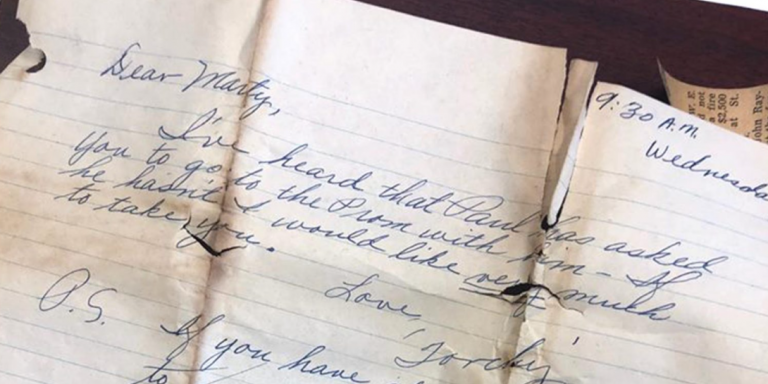 9:30 A.M.
Wednesda
Dear Marty,
I've heard that Paul has asked
you to go to the Prom with him - If
he hasn't I would like very much
to take you.
Love,
"Torchy"
P.S. If you have
to
W. E.
not
a fire
$2,500
at St.
John Ray-